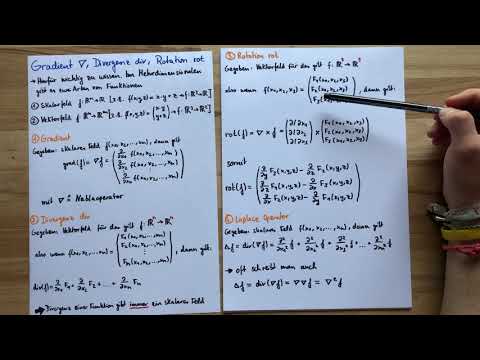 Gradient ∇, Divergenz div, Rotation rot
→ Hierfür wichtig zu wissen: Im Mehrdimensionalen
gibt es zwei Arten von Funktionen
① Skalarfeld f: ℝⁿ→ℝ [z.B. f(x,y,z) = x·y+z → f: ℝ³→ℝ]
② Vektorfeld f: ℝⁿ→ℝᵐ [z.B. f(x,y,z) = (
① Gradient
Gegeben: skalares Feld f(x₁,x₂,...,xₙ), dann gilt
grad(f) = ∇f = (
∂/∂x₁ f(x₁,x₂,...,xₙ)
∂/∂x₂ f(x₁,x₂,...,xₙ)
⋮
∂/∂xₙ f(x₁,x₂,...,xₙ)
)
mit ∇ ≙ Nablaoperator
② Divergenz div
Gegeben: Vektorfeld für das gilt f: ℝⁿ→ℝⁿ
also wenn f(x₁,x₂,...,xₙ) = (
F₁(x₁,x₂,...,xₙ)
F₂(x₁,x₂,...,xₙ)
⋮
Fₙ(x₁,x₂,...,xₙ)
), dann gilt:
div(f) = ∂/∂x₁ F₁ + ∂/∂x₂ F₂ + ... + ∂/∂xₙ Fₙ
→ Divergenz einer Funktion gibt immer ein skalares Feld
③ Rotation rot
Gegeben: Vektorfeld für das gilt f: ℝ³→ℝ³
also wenn f(x₁,x₂,x₃) = (
F₁(x₁,x₂,x₃)
F₂(x₁,x₂,x₃)
), dann gilt:
rot(f) = ∇ × f = (
∂/∂x₁
∂/∂x₂
∂/∂x₃
) × (
F₁(x₁,x₂,x₃)
F₂(x₁,x₂,x₃)
F₃(x₁,x₂,x₃)
)
somit
rot(f) = (
∂/∂y F₃(x,y,z) - ∂/∂z F₂(x,y,z)
∂/∂z F₁(x,y,z) - ∂/∂x F₃(x,y,z)
∂/∂x F₂(x,y,z) - ∂/∂y F₁(x,y,z)
)
④ Laplace Operator
Gegeben: skalares Feld f(x₁,x₂,...,xₙ), dann gilt
Δf = div(∇f) = ∂²/∂x₁² f + ∂²/∂x₂² f + ∂²/∂x₃² f + ... + ∂²/∂xₙ² f
→ oft schreibt man auch
Δf = div(∇f) = ∇∇f = ∇²f